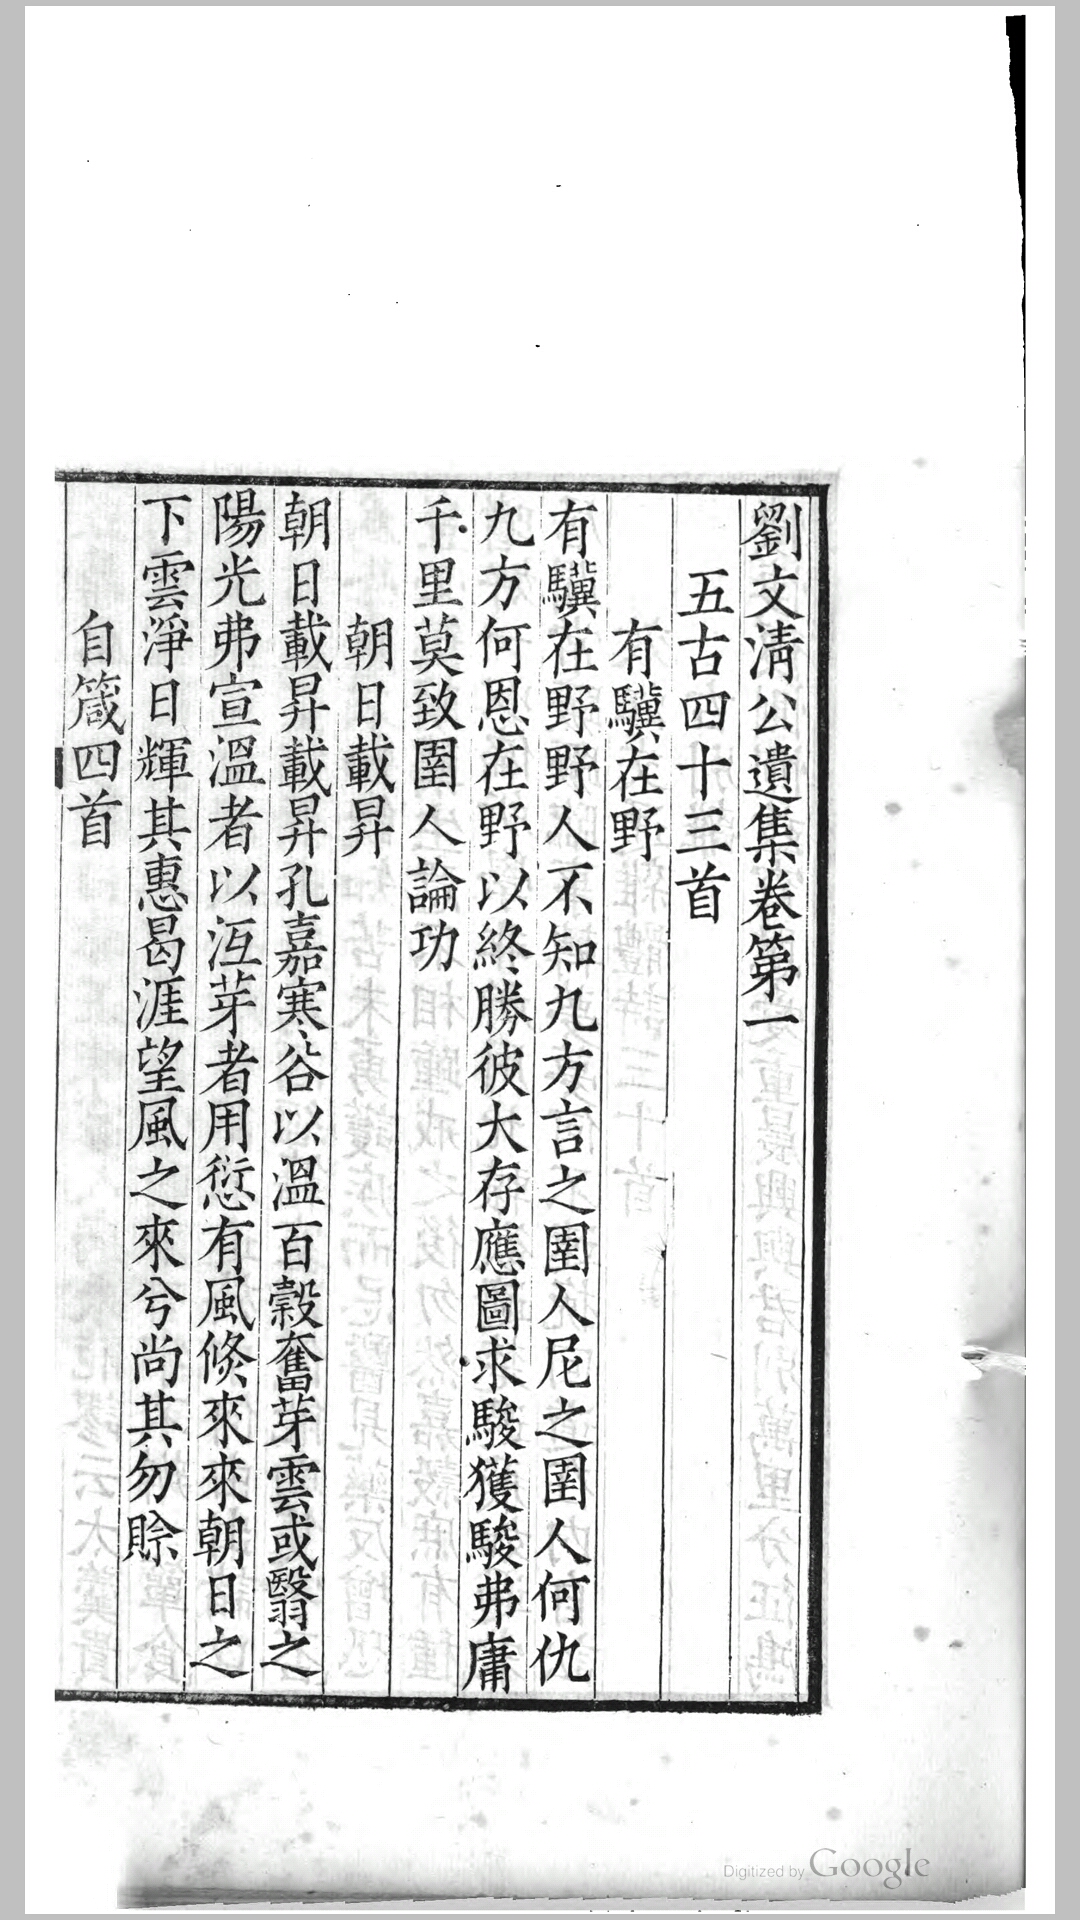 劉文淸公遺集卷第一
五古四十三首
有驥在野
有驥在野野人不知九方言之圉人尼之圉人何仇
九方何恩在野以終勝彼大存應圖求駿獲駿弗庸
千里莫致圉人論功
朝日載昇
朝日載昇載昇孔嘉寒谷以溫百穀奮芽雲或翳之
陽光弗宣溫者以沍芽者用愆有風倏來來朝日之
下雲淨日輝其惠曷涯望風之來兮尚其勿賒
自箴四首
Digitized by Google